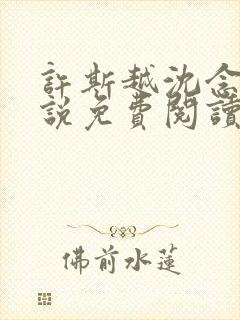 許斯越沈念
説免費閱讀
佛前水蓮